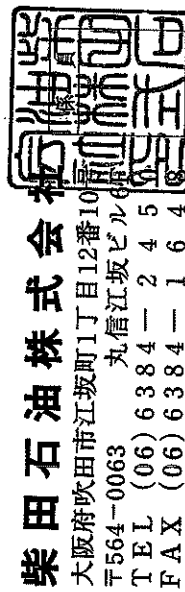 柴田石油株式会社
大阪府吹田市江坂町1丁目12番10号
〒564-0063 丸信江坂ビル6
TEL (06)6384―245
FAX (06)6384―164